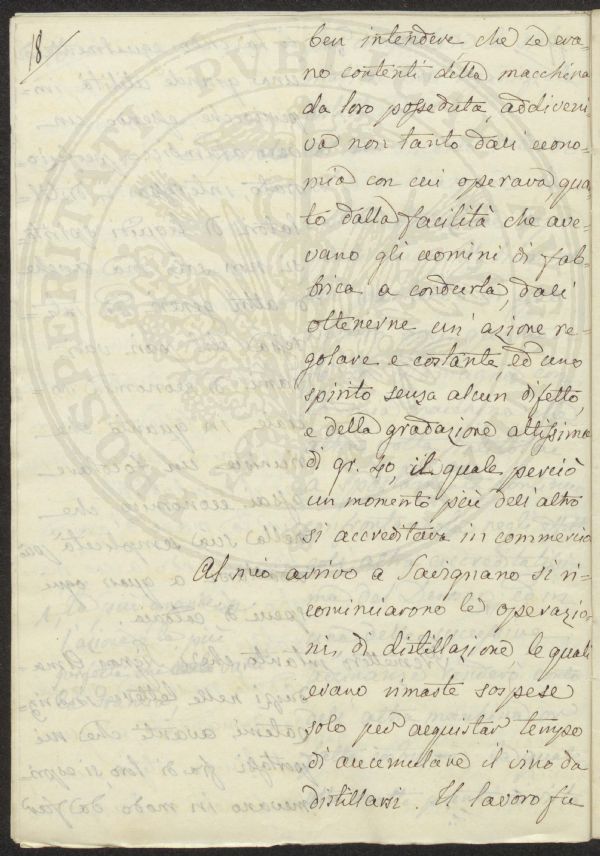 18
ben intendere che se era-
no contenti della macchina
da loro posseduta, addiveni-
va non tanto dall' econo-
mia con cui operava, qua-
to dalla facilità che ave-
vano gli uomini di fab-
brica a condurla, dall'
ottenerne un' azione re-
golare e costante, ed uno
spirito senza alcun difetto,
e della gradazione altissima
di gr. 40, il quale perciò
un momento più dell' altro
si accreditava in commercio
Al mio arrivo a Savignano si ri-
cominciarono le operazio-
ni, di distillazione le quali
erano rimaste sospese
solo per acquistar tempo
di accumulare il vino da
distillarsi. Il lavoro fu